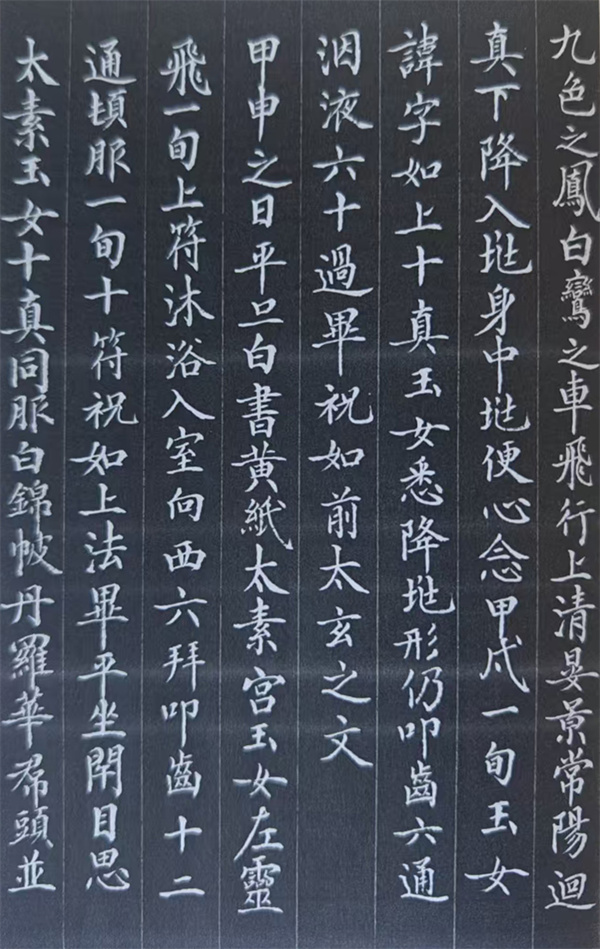 九色之鳳白鸞之車飛行上清晏景常陽迴
真下降入兆身中兆便心念甲戌一旬玉女
諱字如上十真玉女悉降兆形仍叩齒六通
咽液六十過畢祝如前太玄之文
甲申之日平旦白書黃紙太素宮玉女左靈
飛一旬上符沐浴入室向西六拜叩齒十二
通頓服一旬十符祝如上法畢平坐閉目思
太素玉女十真同服白錦帔丹羅華帬頭並